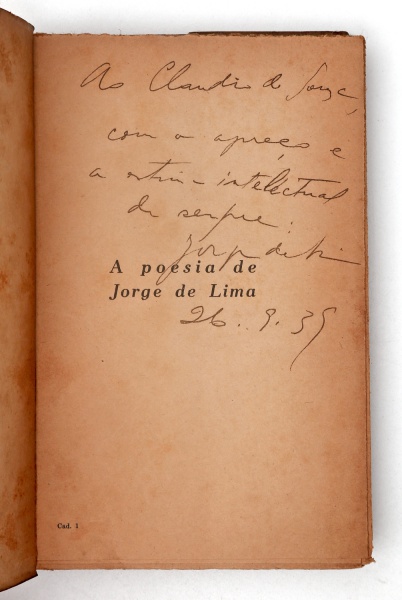 Ao Claudio de Souza,
com o apreço e
a estima intelectual
de sempre:
Jorge de Lima
A poesia de
Jorge de Lima
26. 9. 35
Cad. 1